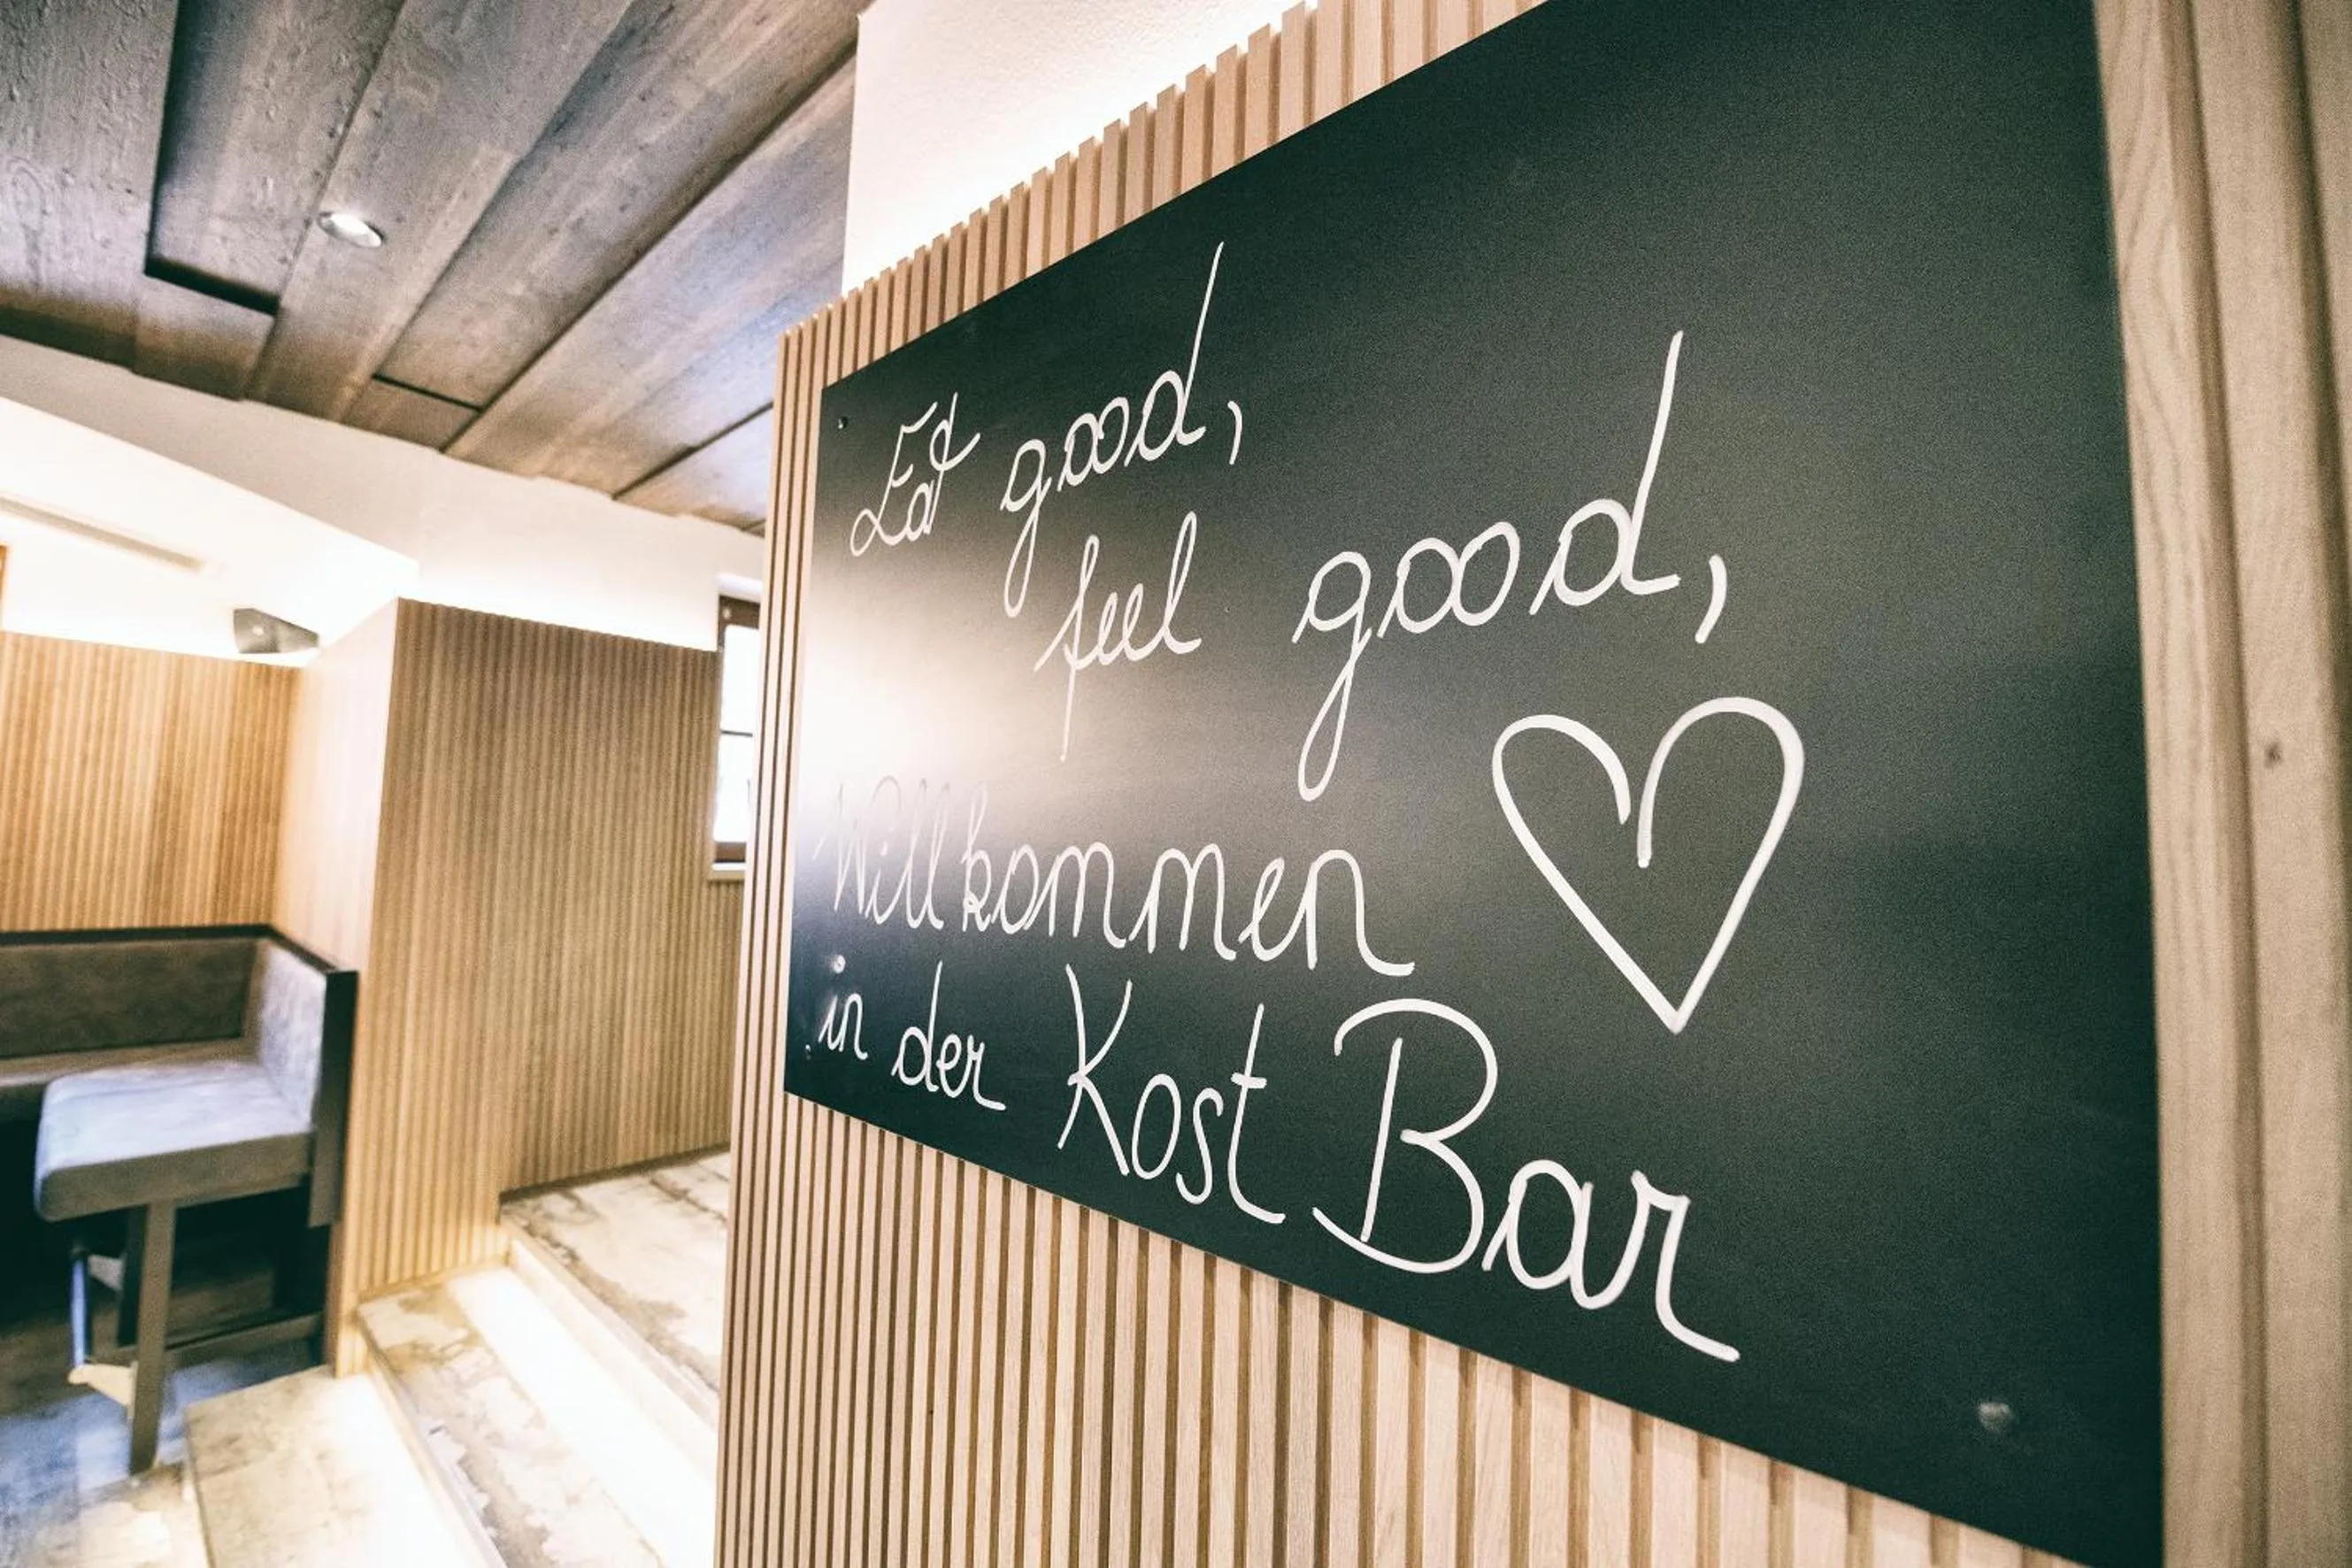 Eat good,
feel good,
Willkommen
in der Kost Bar